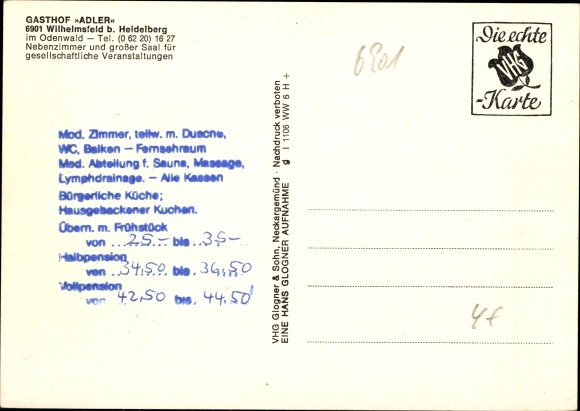 GASTHOF »ADLER«
6901 Wilhelmsfeld b. Heidelberg
im Odenwald — Tel. (0 62 20) 16 27
Nebenzimmer und großer Saal für
gesellschaftliche Veranstaltungen
6901
Die echte
VHG
-Karte
Mod. Zimmer, teilw. m. Dusche,
WC, Balkon – Fernsehraum
Med. Abteilung f. Sauna, Massage,
Lymphdrainage. – Alle Kassen
Bürgerliche Küche;
Hausgebackener Kuchen.
Übern. m. Frühstück
von 25.- bis 35.-
Halbpension
von 34,50 bis 36,50
Vollpension
von 42,50 bis 44,50
VHG Glogner & Sohn, Neckargemünd · Nachdruck verboten
EINE HANS GLOGNER AUFNAHME g I 1106 WW 6 H +